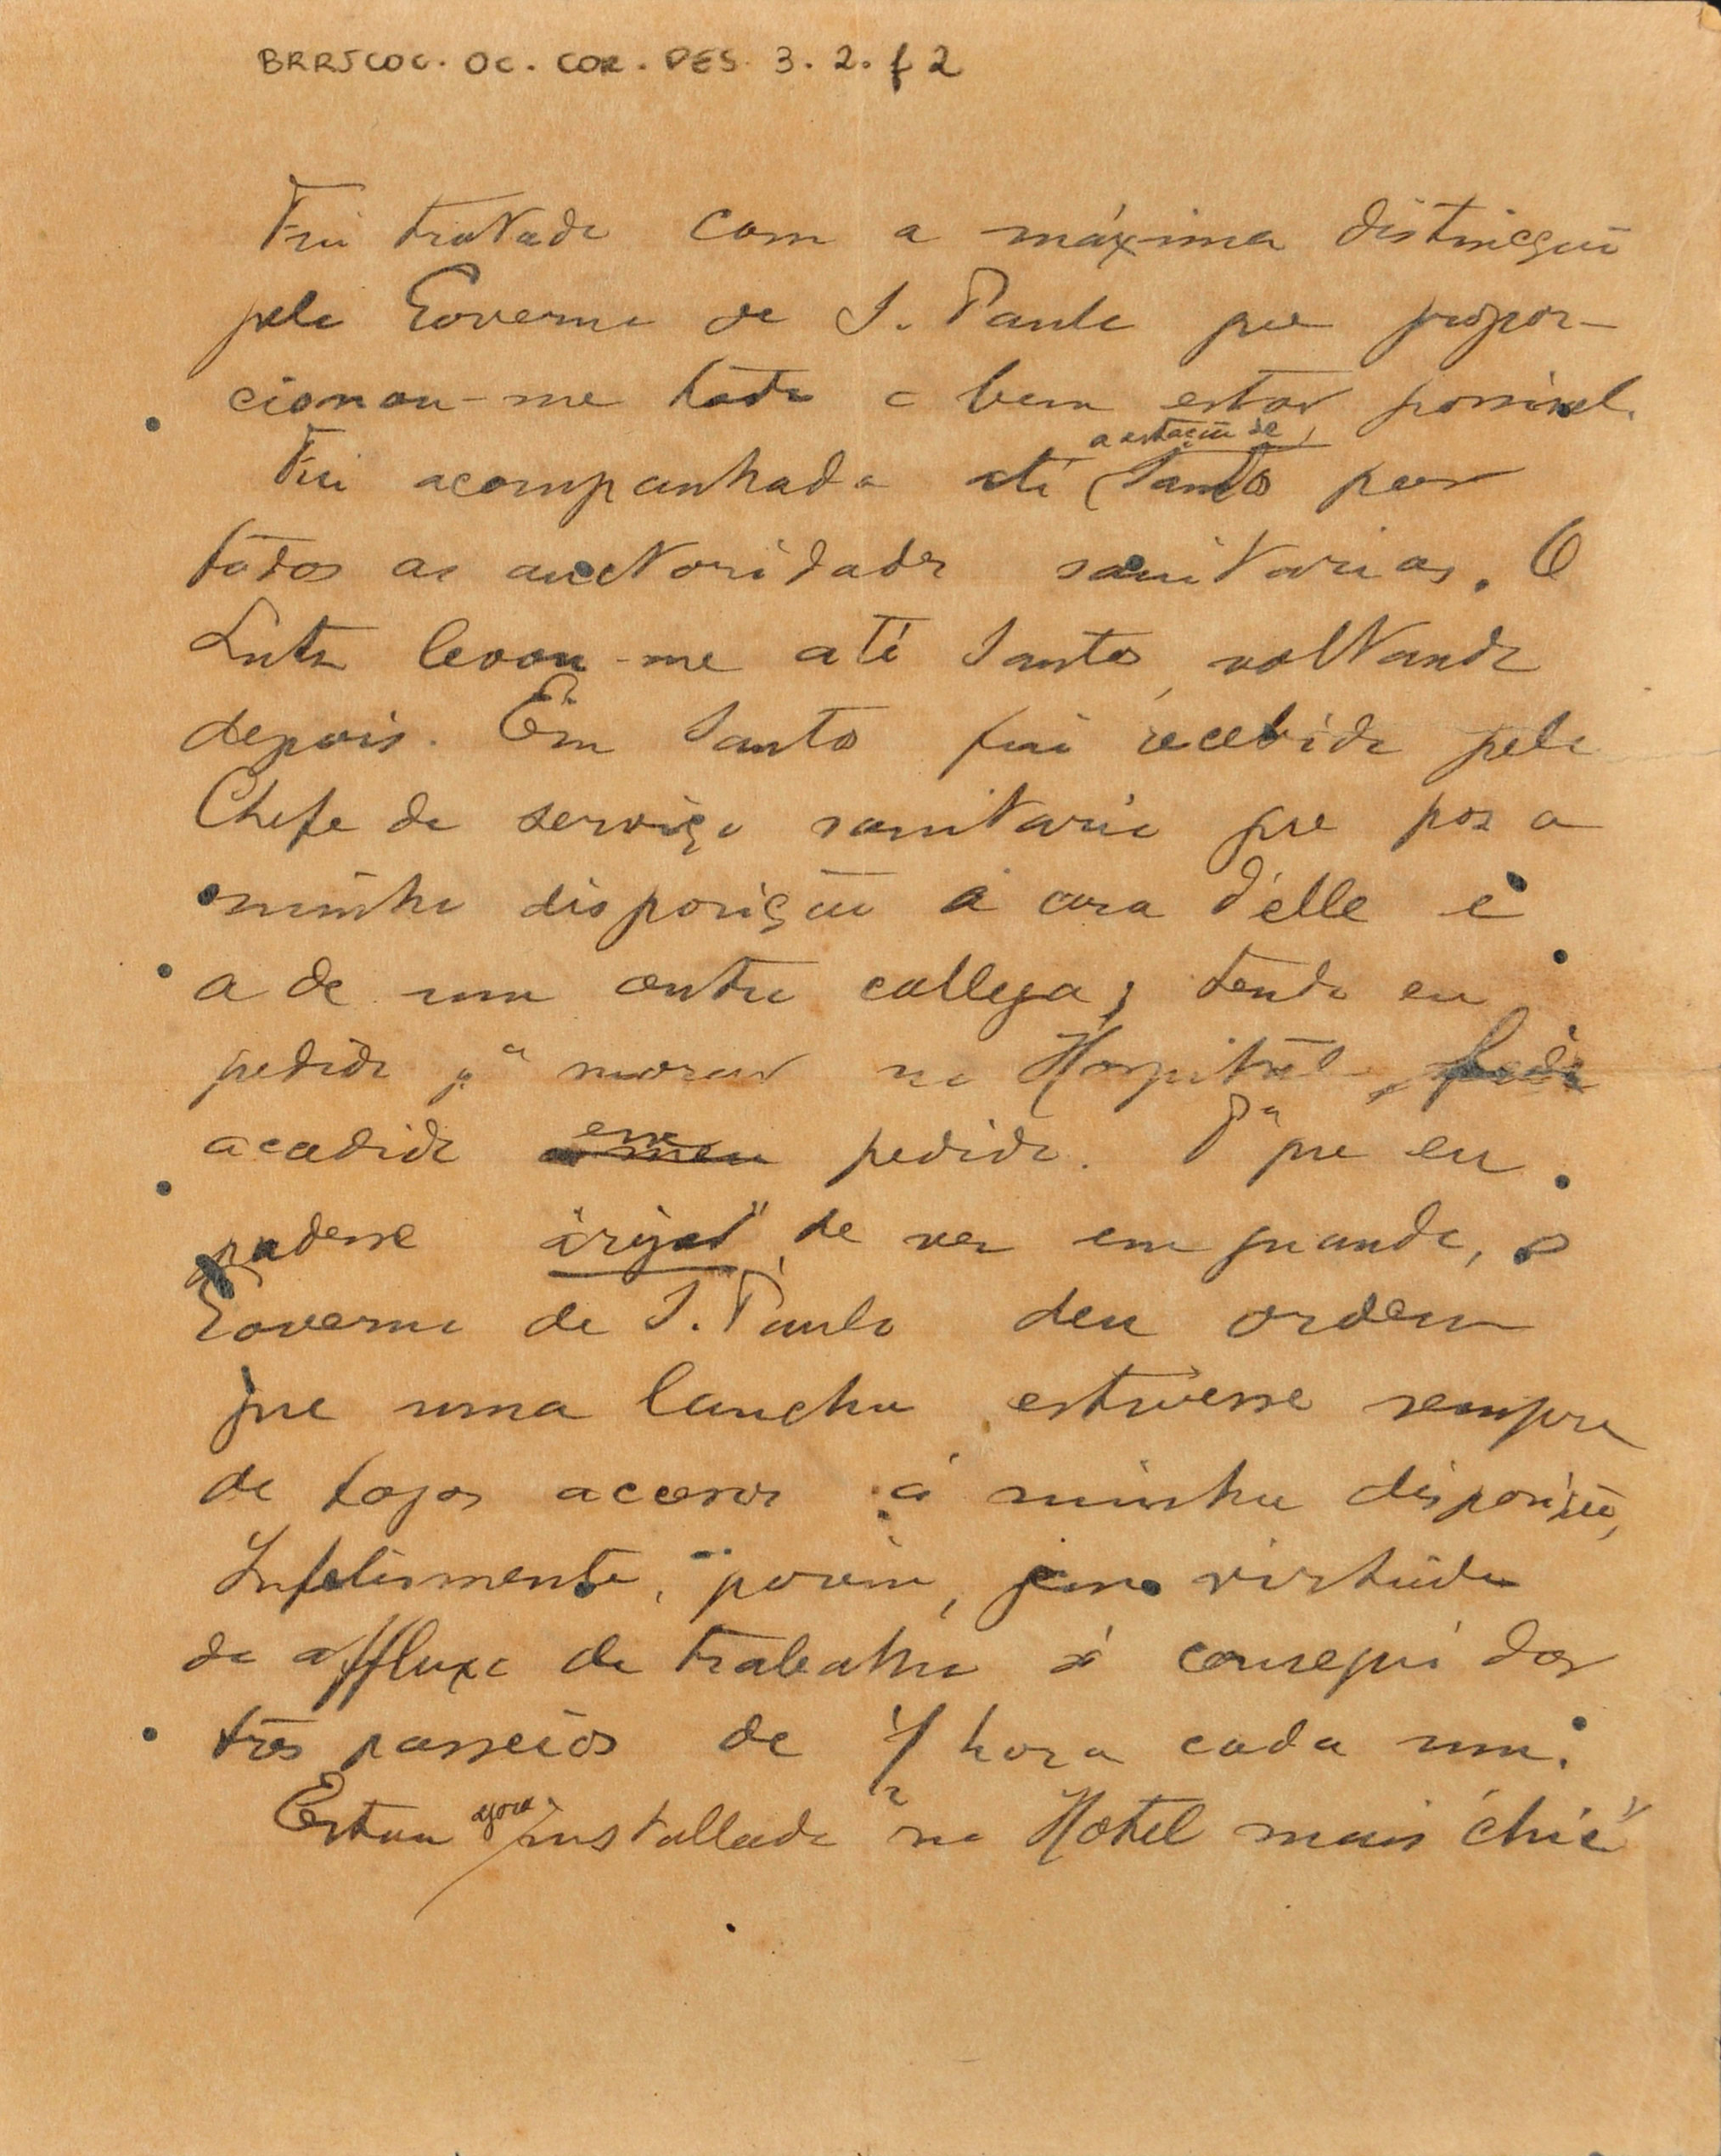 BRRJCOC. OC. COR. DES. 3. 2. f 2
Fui tratado com a máxima distincção
pelo Governo de S. Paulo que propor-
cionou-me todo o bem estar possivel.
a estação de
Fui acompanhado até Santos por
todas as auctoridades sanitarias. O
Lutz levou-me até Santos, voltando
depois. Em Santos fui recebido pelo
Chefe do serviço sanitario que poz a
minha disposição a casa d'elle e
a de um outro collega; tendo eu
pedido pª morar no Hospital,
acedido esse meu pedido. Pª que eu
podesse "irijar" de ver em grande, o
Governo de S. Paulo deu ordem
que uma lancha estivesse sempre
de fogos accesos á minha disposição,
Infelismente, porém, em virtude
do affluxo de trabalho só consegui dar
três passeios de ½ hora cada um.
Estou agora installado no Hotel mais "chic"